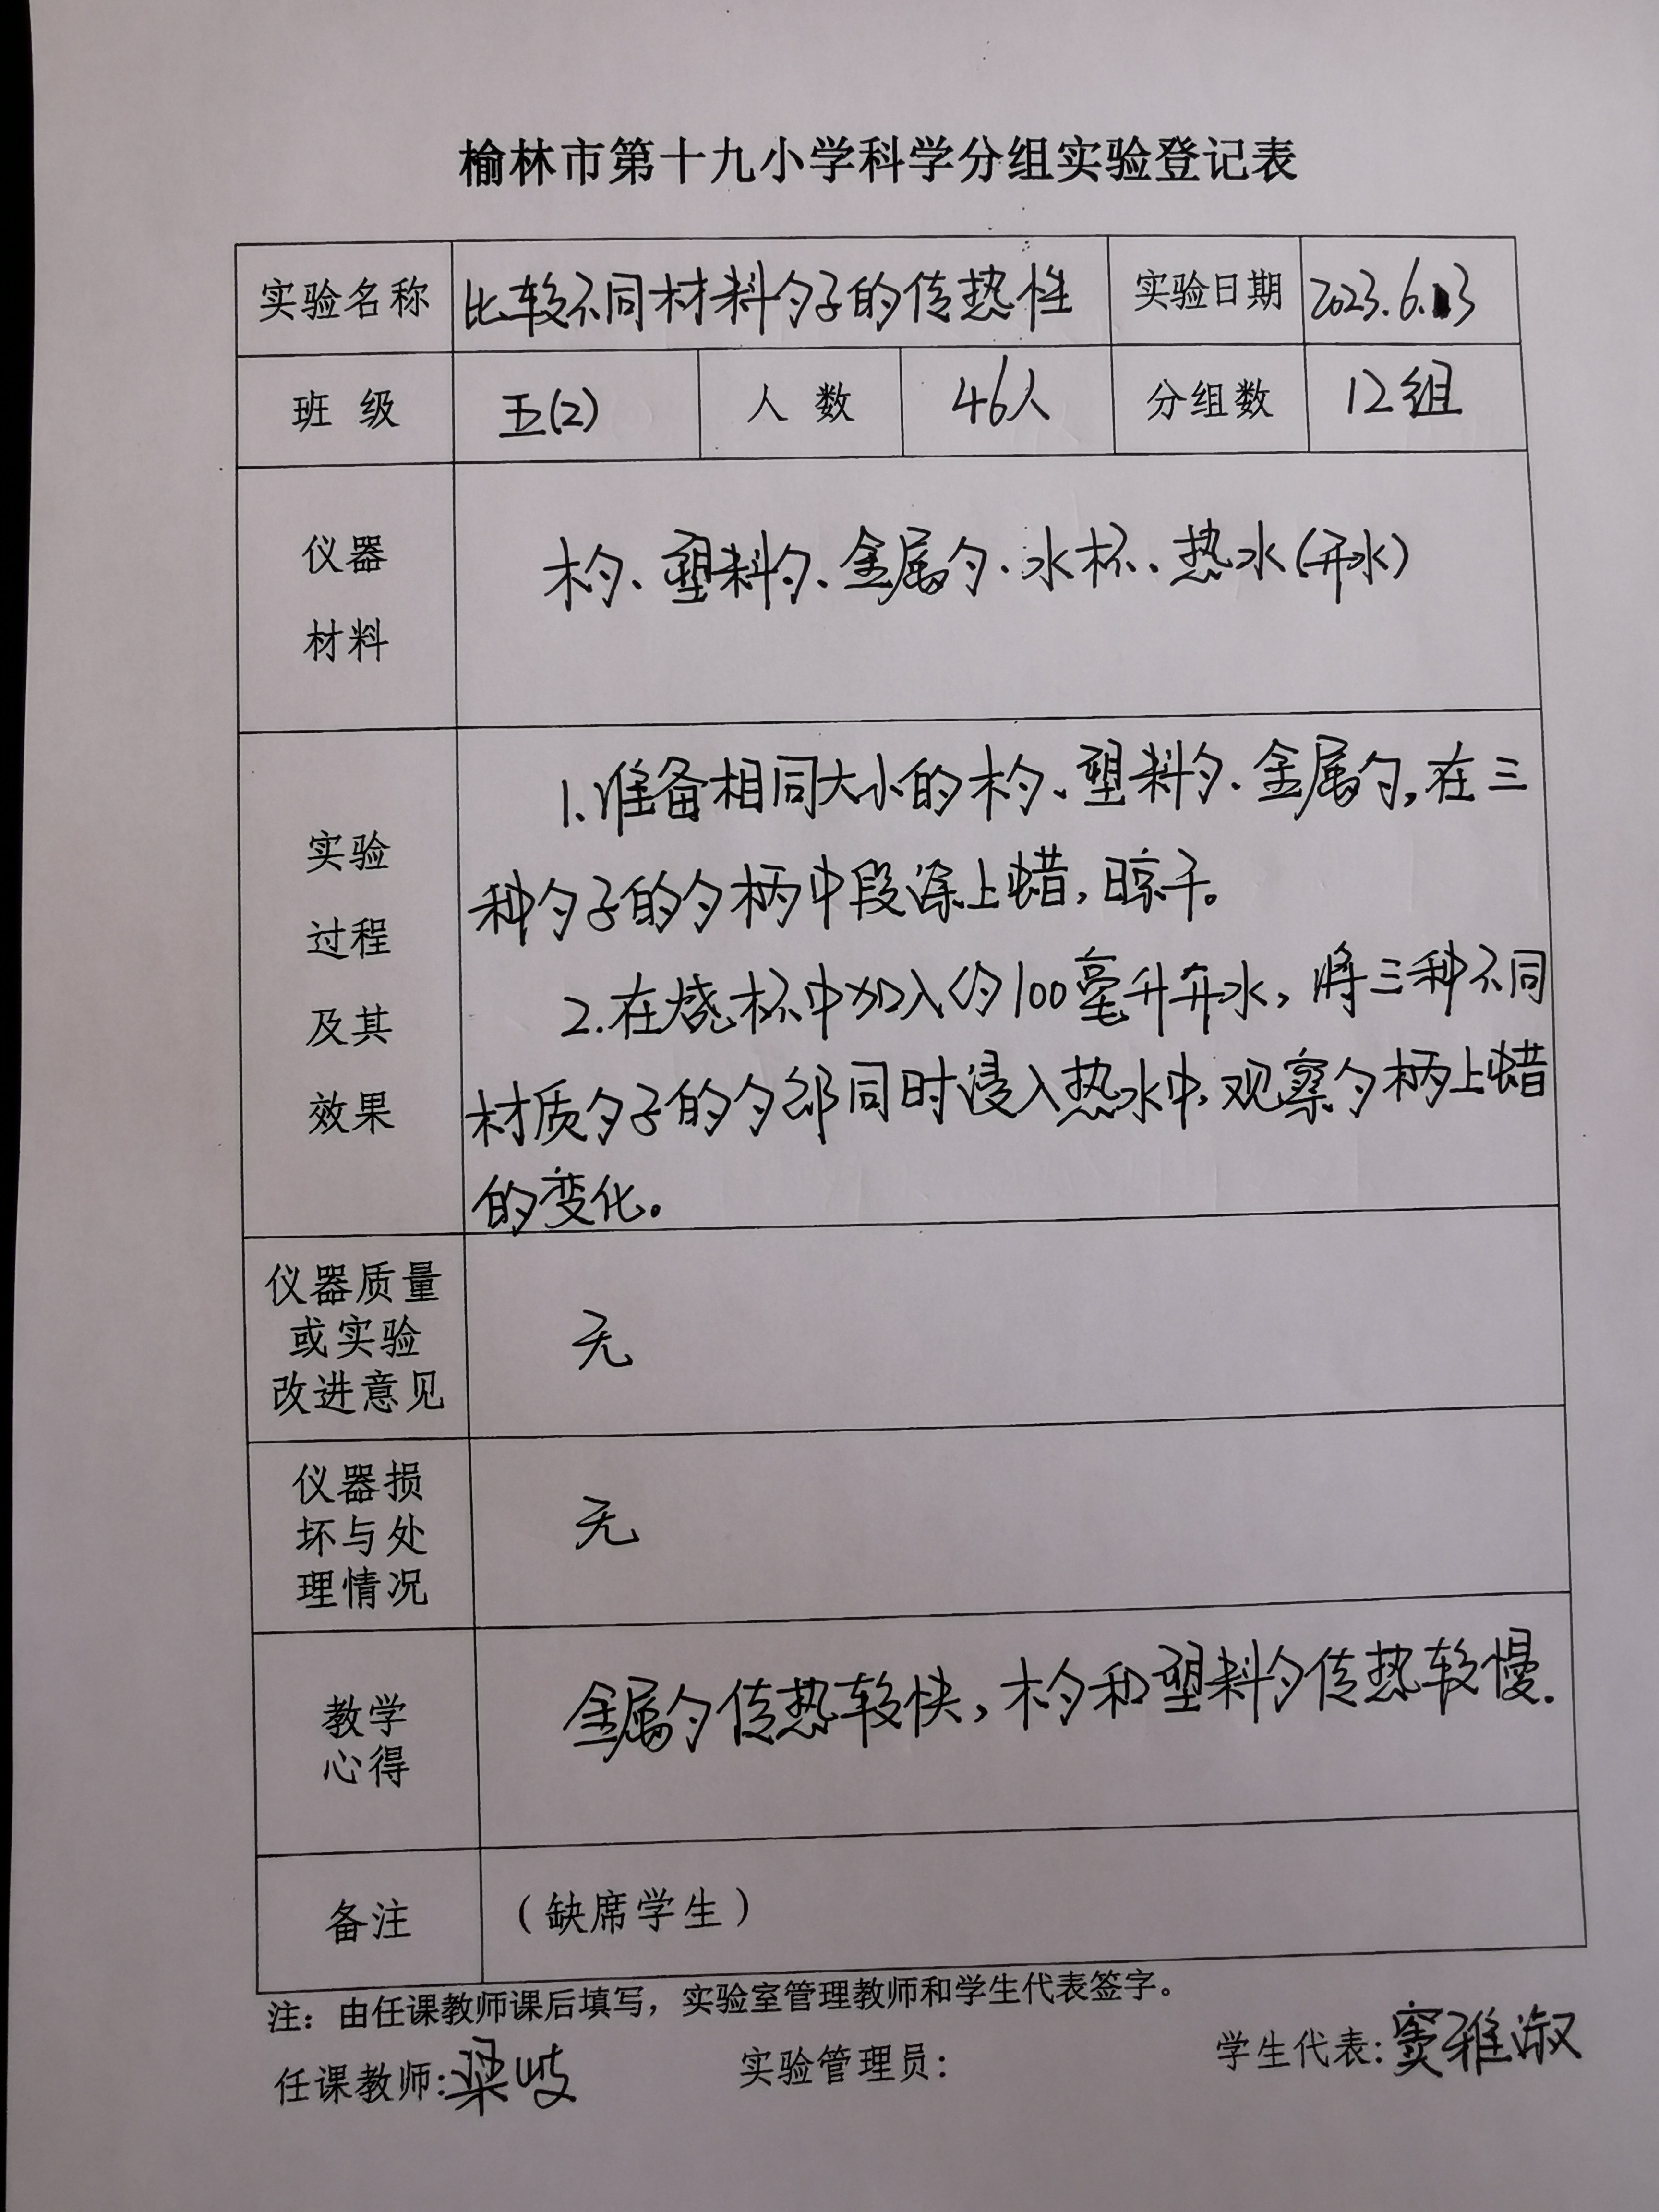 榆林市第十九小学科学分组实验登记表
实验名称 比较不同材料勺子的传热性 实验日期 2023.6.13
班 级 五(2) 人 数 46人 分组数 12组
仪器
材料
木勺、塑料勺、金属勺、水杯、热水(开水)
实验
过程
及其
效果
1.准备相同大小的木勺、塑料勺、金属勺,在三
种勺子的勺柄中段涂上蜡,晾干。
2.在烧杯中加入约100毫升开水,将三种不同
材质勺子的勺部同时浸入热水中,观察勺柄上蜡
的变化。
仪器质量
或实验
改进意见
无
仪器损
坏与处
理情况
无
教学
心得
金属勺传热较快,木勺和塑料勺传热较慢.
备注 (缺席学生)
注:由任课教师课后填写,实验室管理教师和学生代表签字。
任课教师:梁岐 实验管理员: 学生代表:窦雅淑